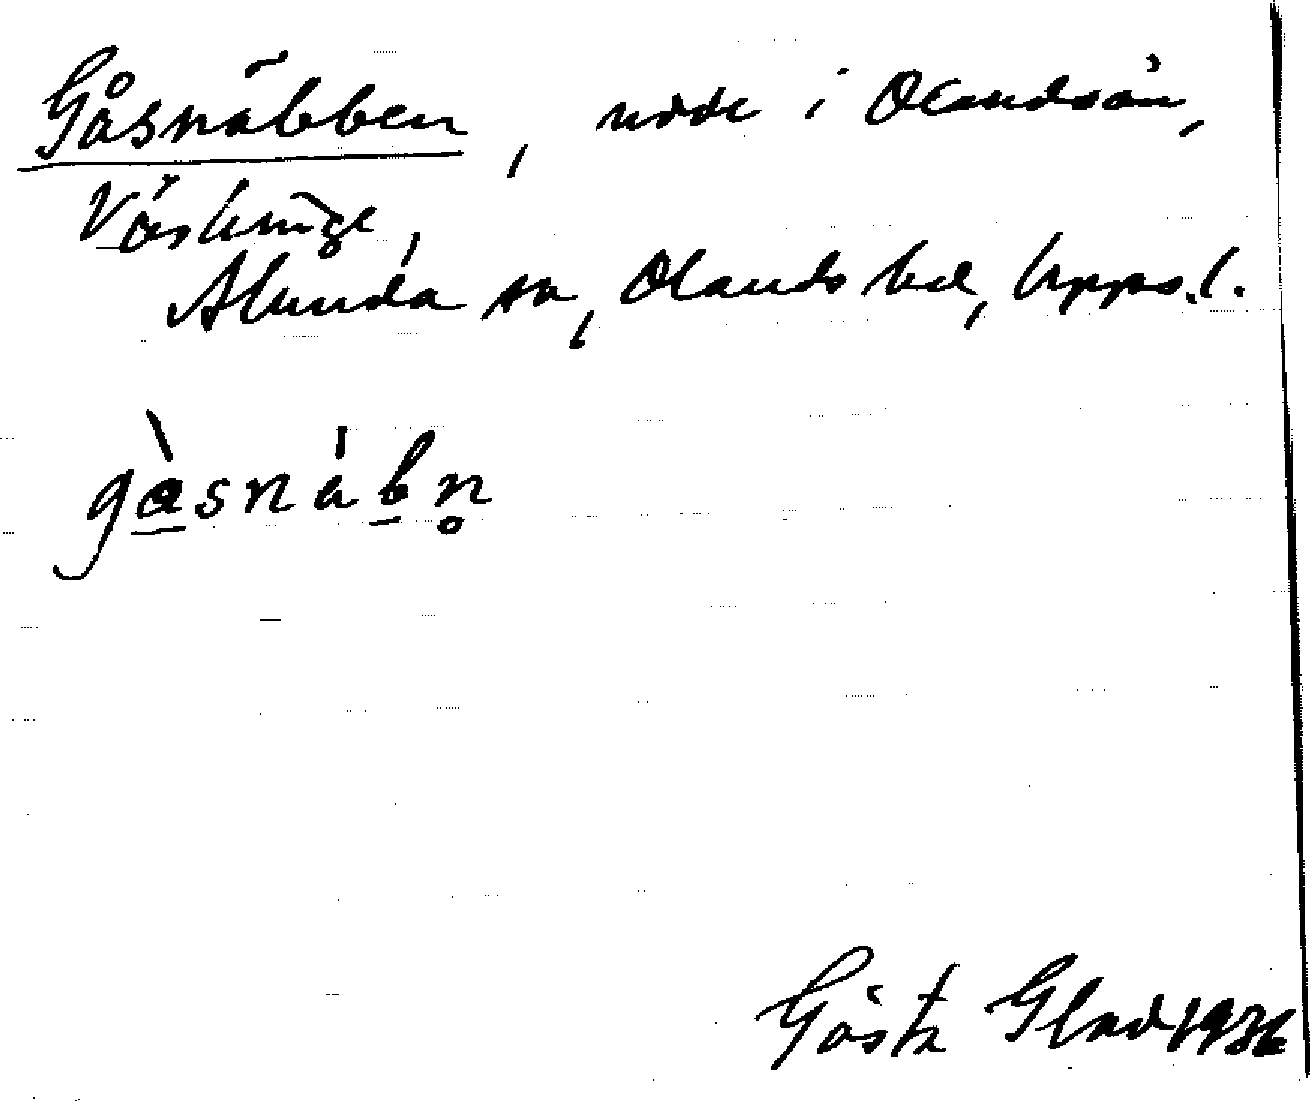 Gåsnäbben, udde i Olandsån,
Väskinge,
Alunda sn, Olands hd, Upps.l.
gàsnábn̥
Gösta Glad 1936